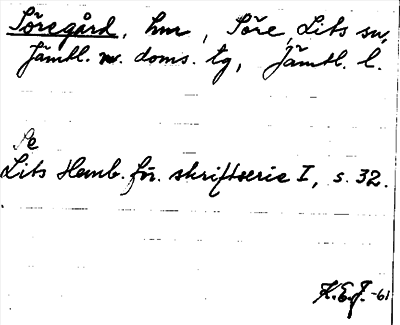 Söregård, hmn, Söre, Lits sn,
Jämtl. n. doms. tg, Jämtl. l.
Se
Lits Hemb. för. skriftserie I, s. 32.
K.E.F. -61